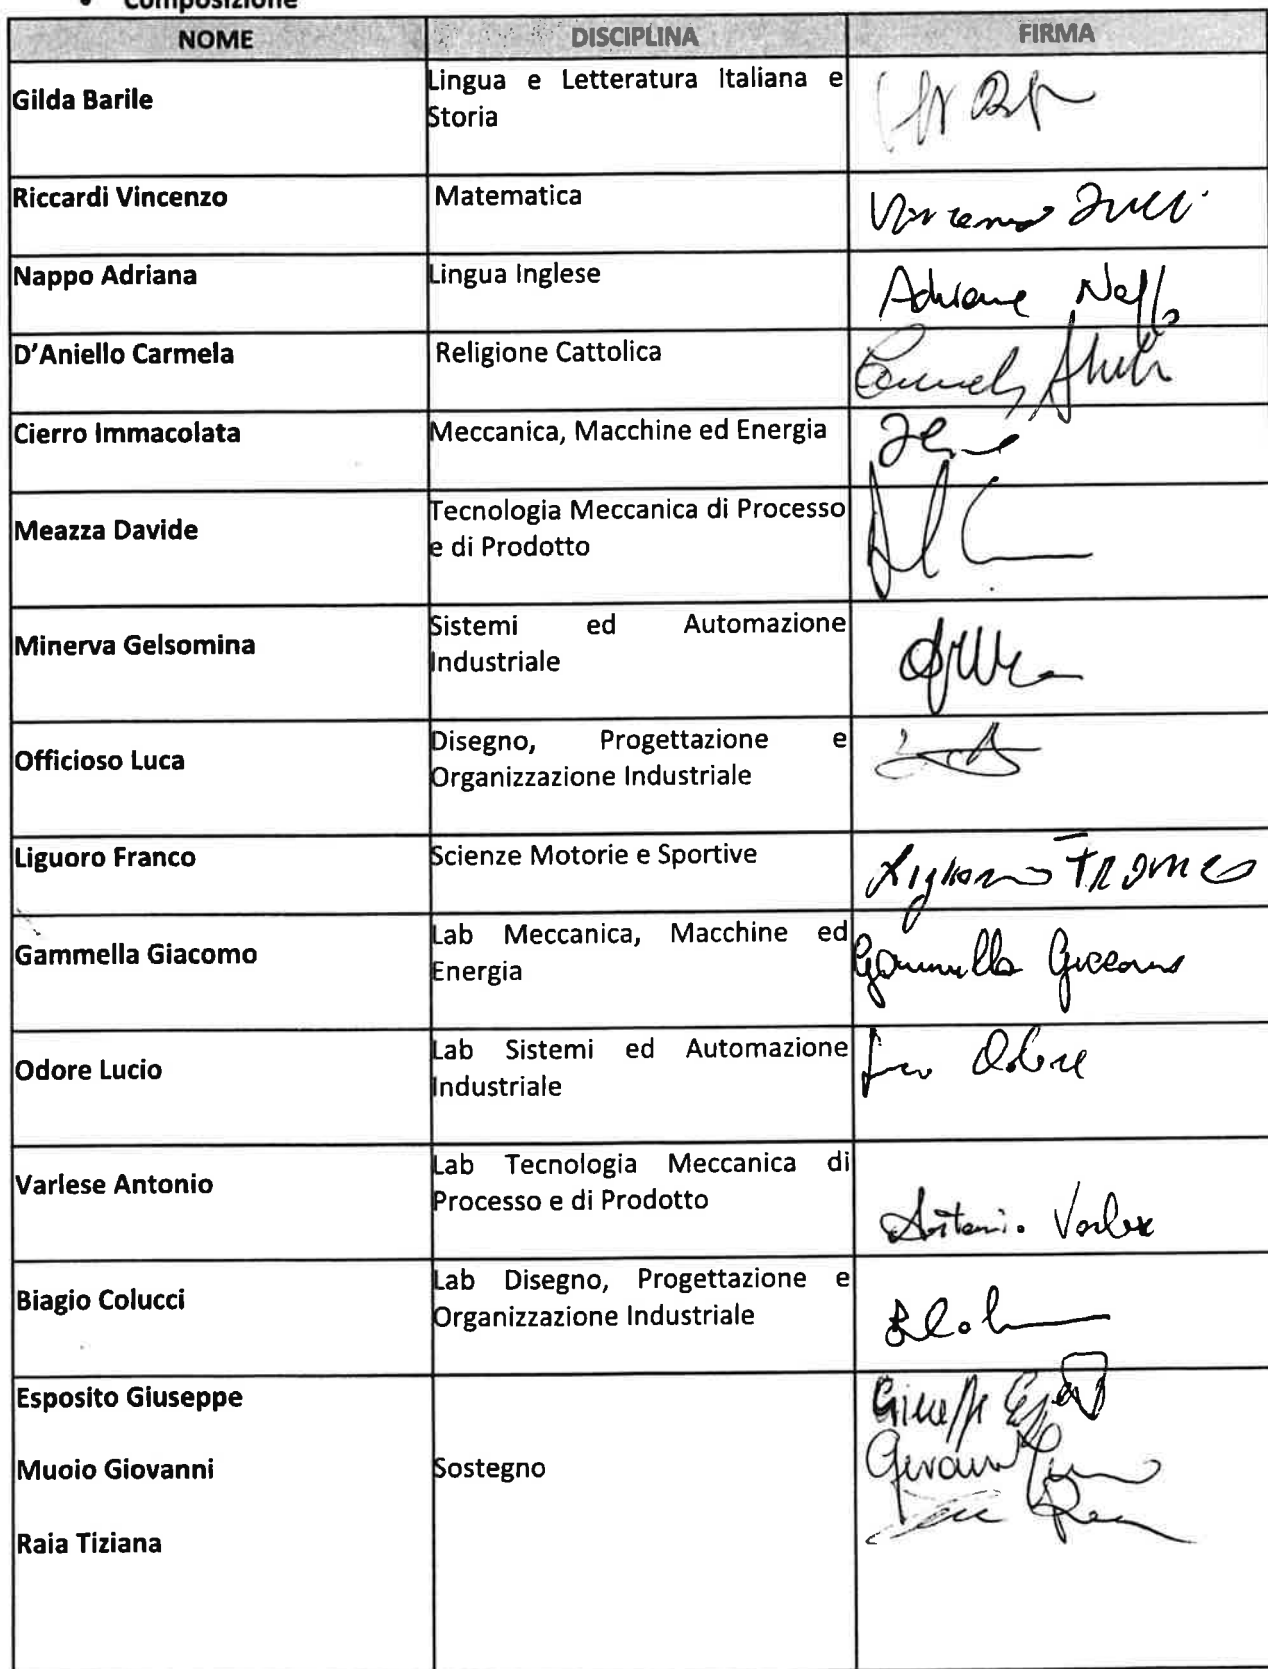 • Composizione
NOME DISCIPLINA FIRMA
Gilda Barile Lingua e Letteratura Italiana e
Storia
Riccardi Vincenzo Matematica Vincenzo
Nappo Adriana Lingua Inglese Adriana Nappo
D'Aniello Carmela Religione Cattolica Carmela
Cierro Immacolata Meccanica, Macchine ed Energia
Meazza Davide Tecnologia Meccanica di Processo
e di Prodotto
Minerva Gelsomina Sistemi ed Automazione
Industriale
Officioso Luca Disegno, Progettazione e
Organizzazione Industriale
Liguoro Franco Scienze Motorie e Sportive Liguoro Franco
Gammella Giacomo Lab Meccanica, Macchine ed
Energia Gammella Giacomo
Odore Lucio Lab Sistemi ed Automazione
Industriale Odore
Varlese Antonio Lab Tecnologia Meccanica di
Processo e di Prodotto Antonio Varlese
Biagio Colucci Lab Disegno, Progettazione e
Organizzazione Industriale
Esposito Giuseppe Giuseppe Esposito
Muoio Giovanni Sostegno Giovanni
Raia Tiziana